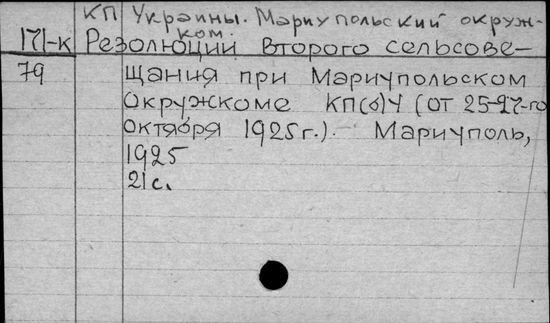 КП Украины. Мариупольский окруж-
ком.
171-к Резолюции второго сельсове-
79 щания при Мариупольском
Окружкоме КП(б)У (от 25-27-го
октября 1925г.). Мариуполь,
1925
21с.